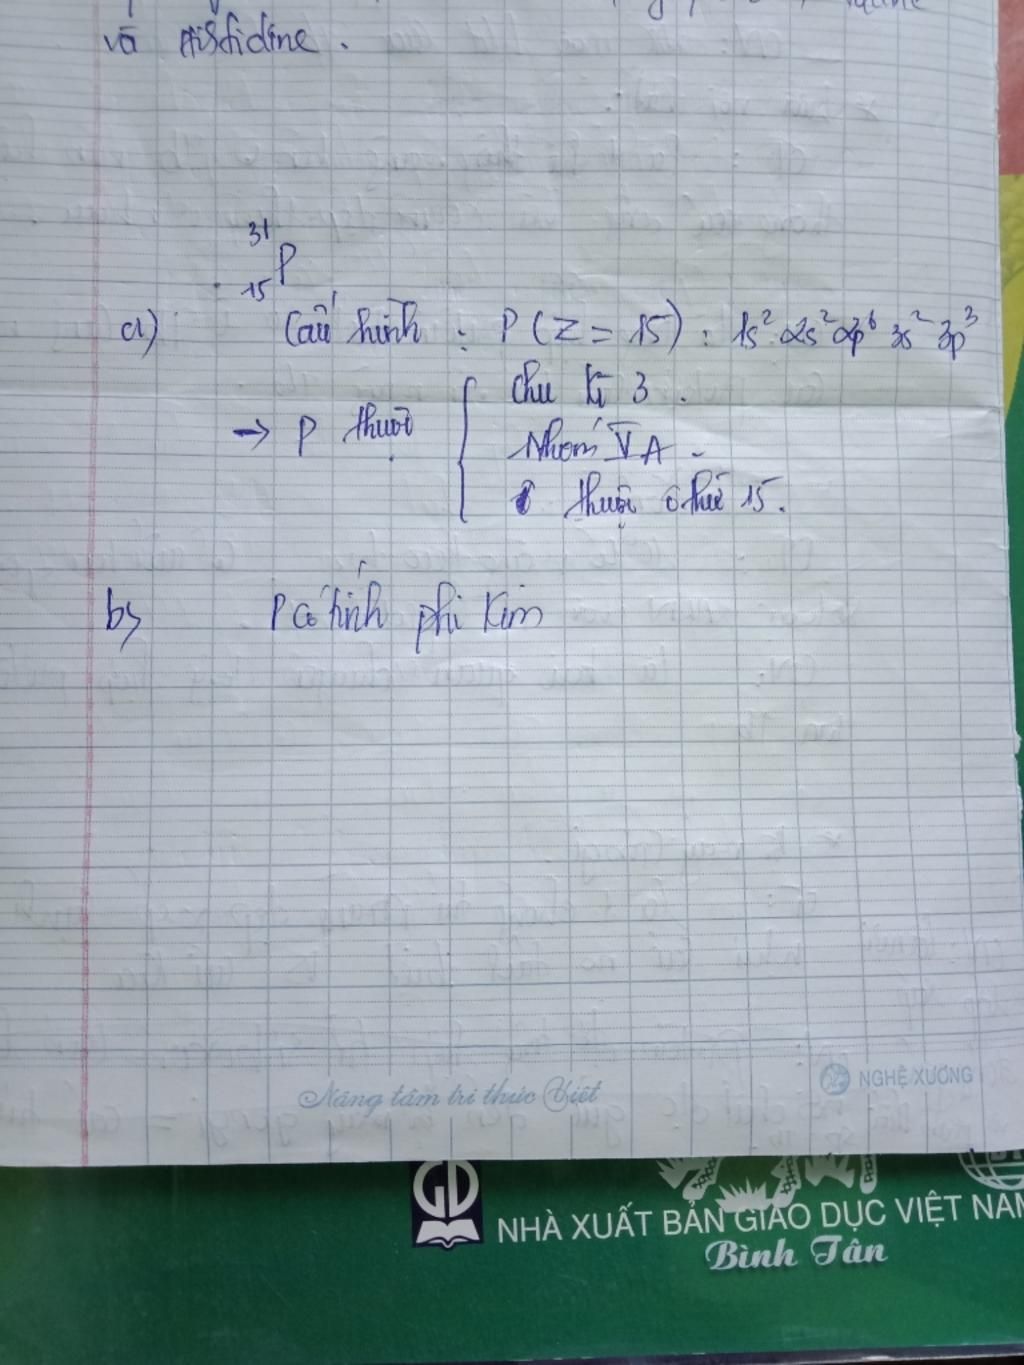 và Histidine.
31
P
15
a) Cấu hình : P (Z = 15) : 1s² 2s² 2p⁶ 3s² 3p³
chu kì 3.
→ P thuộc
Nhóm VA.
thuộc ô thứ 15.
b) P có tính phi kim
Nâng tầm tri thức Việt
NGHỆ XƯƠNG
GD
NHÀ XUẤT BẢN GIÁO DỤC VIỆT NAM
Bình Tân